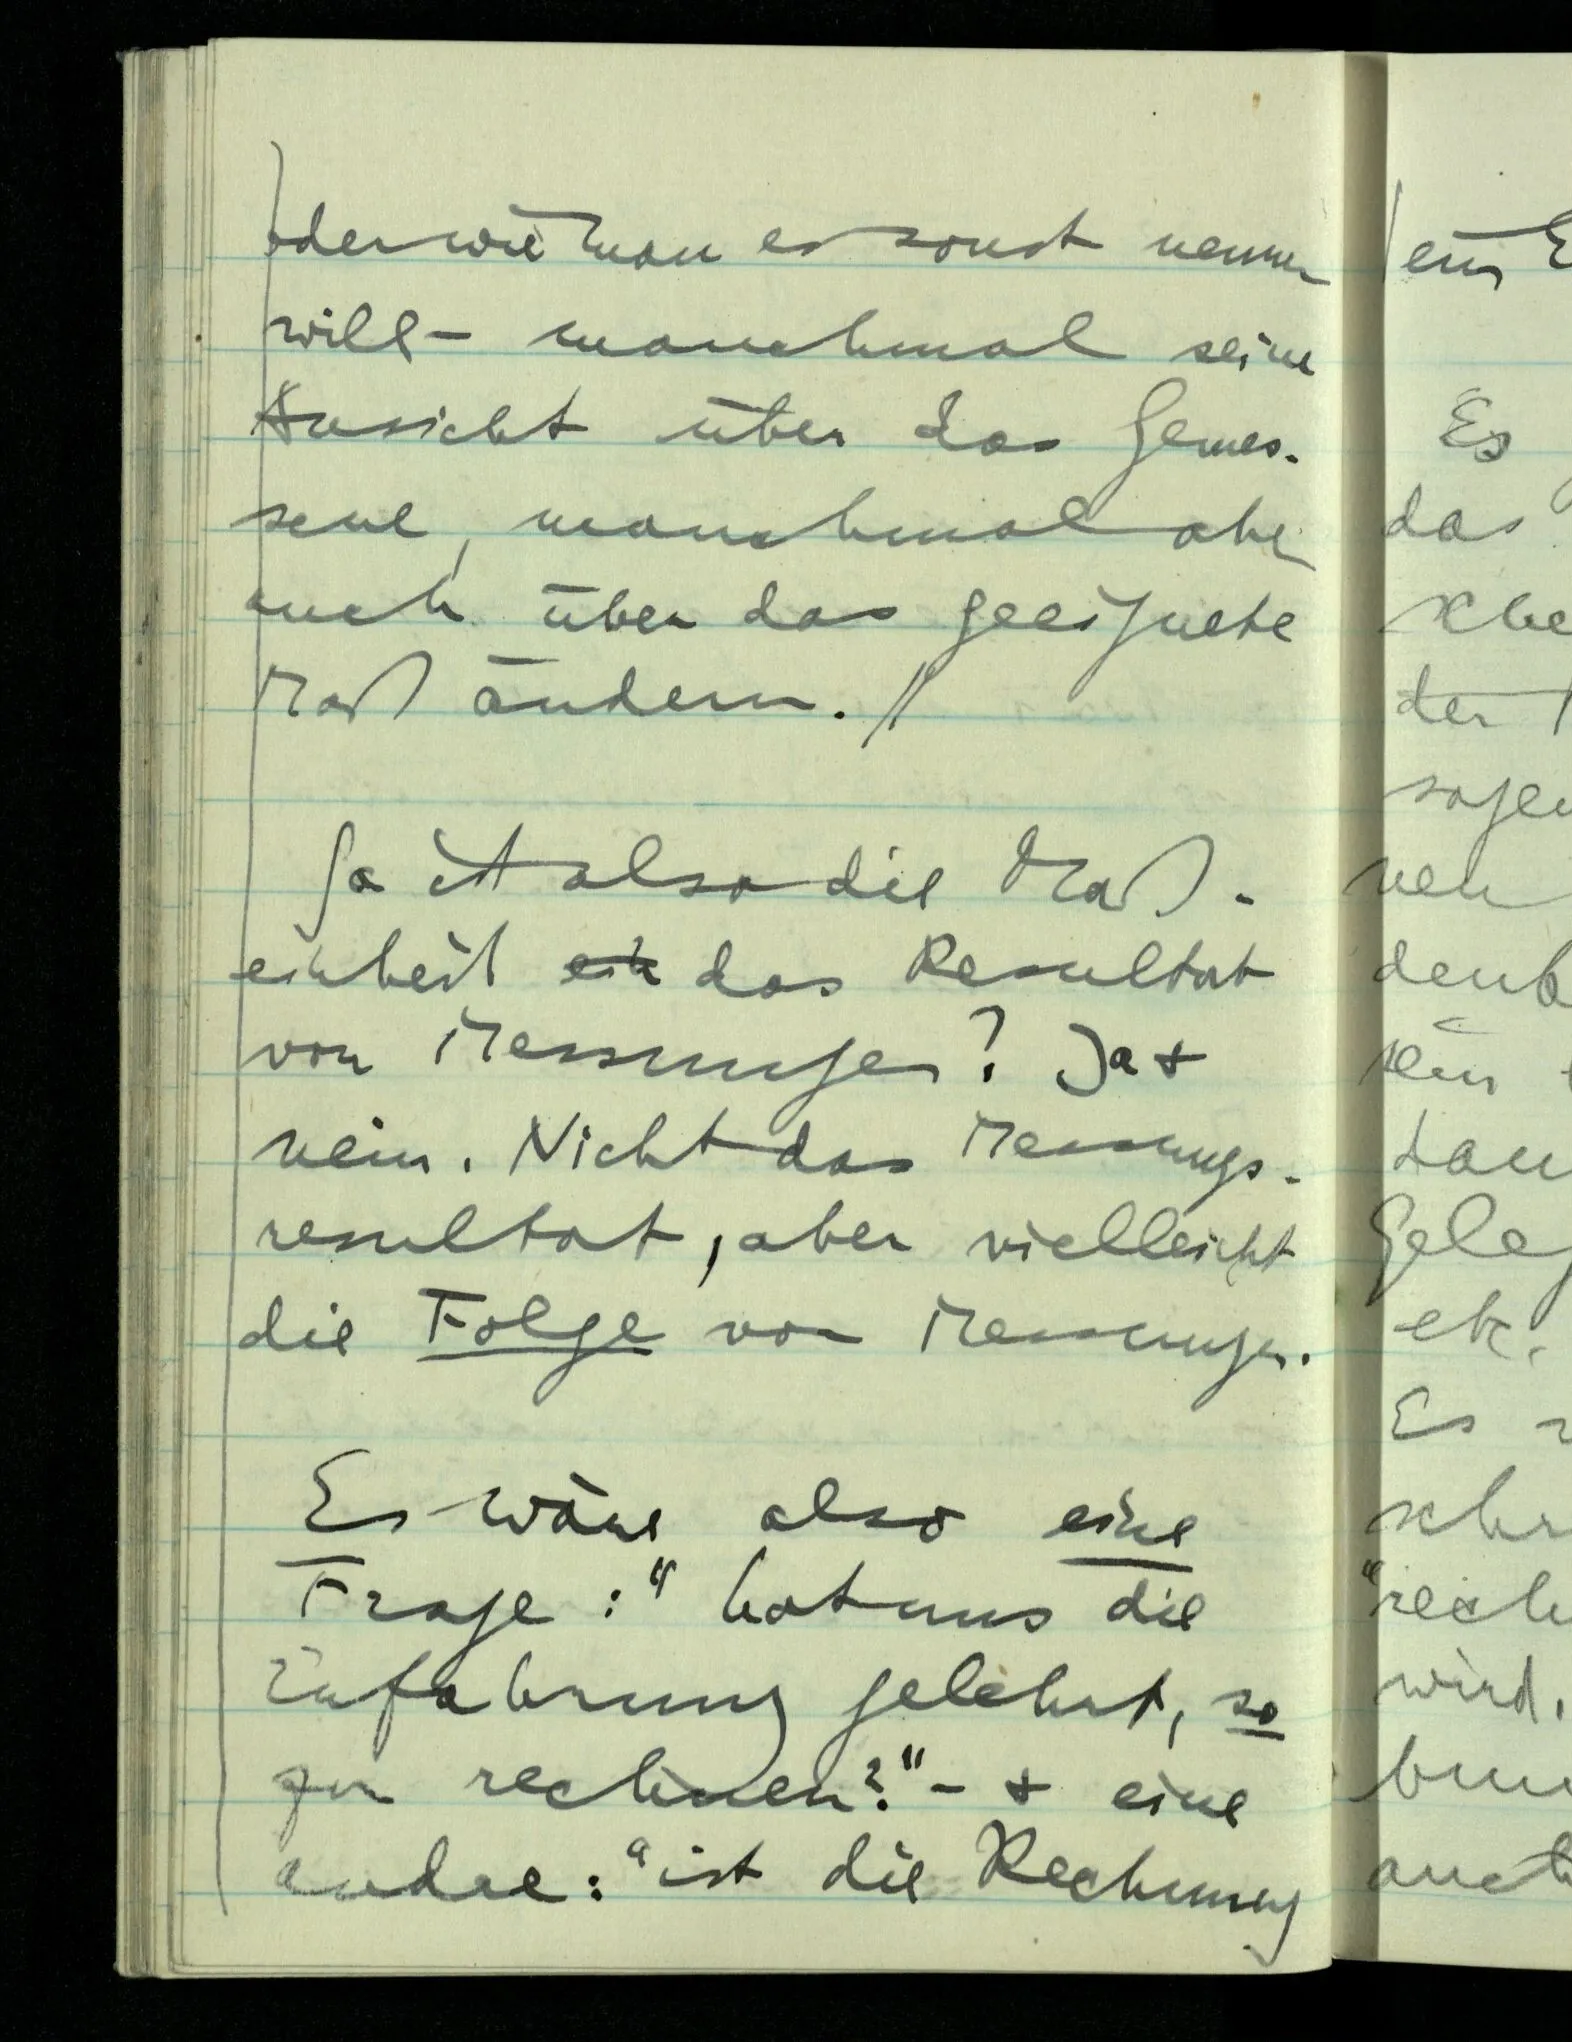 oder wie man es sonst nennen
will – manchmal seine
Ansicht über das Gemes-
sene, manchmal aber
auch über das geeignete
Maß ändern. //
So ist also die Maß-
einheit ein das Resultat
von Messungen? Ja &
nein. Nicht das Messungs-
resultat, aber vielleicht
die Folge von Messungen.
Es wäre also eine
Frage: "hat uns die
Erfahrung gelehrt, so
zu rechnen?" – & eine
andre: "ist die Rechnung
ein E
Es
das
sche
der
sagen
nen
denk
sein
dan
Geleg
etc.
Es
schr
"rech
wird,
auch